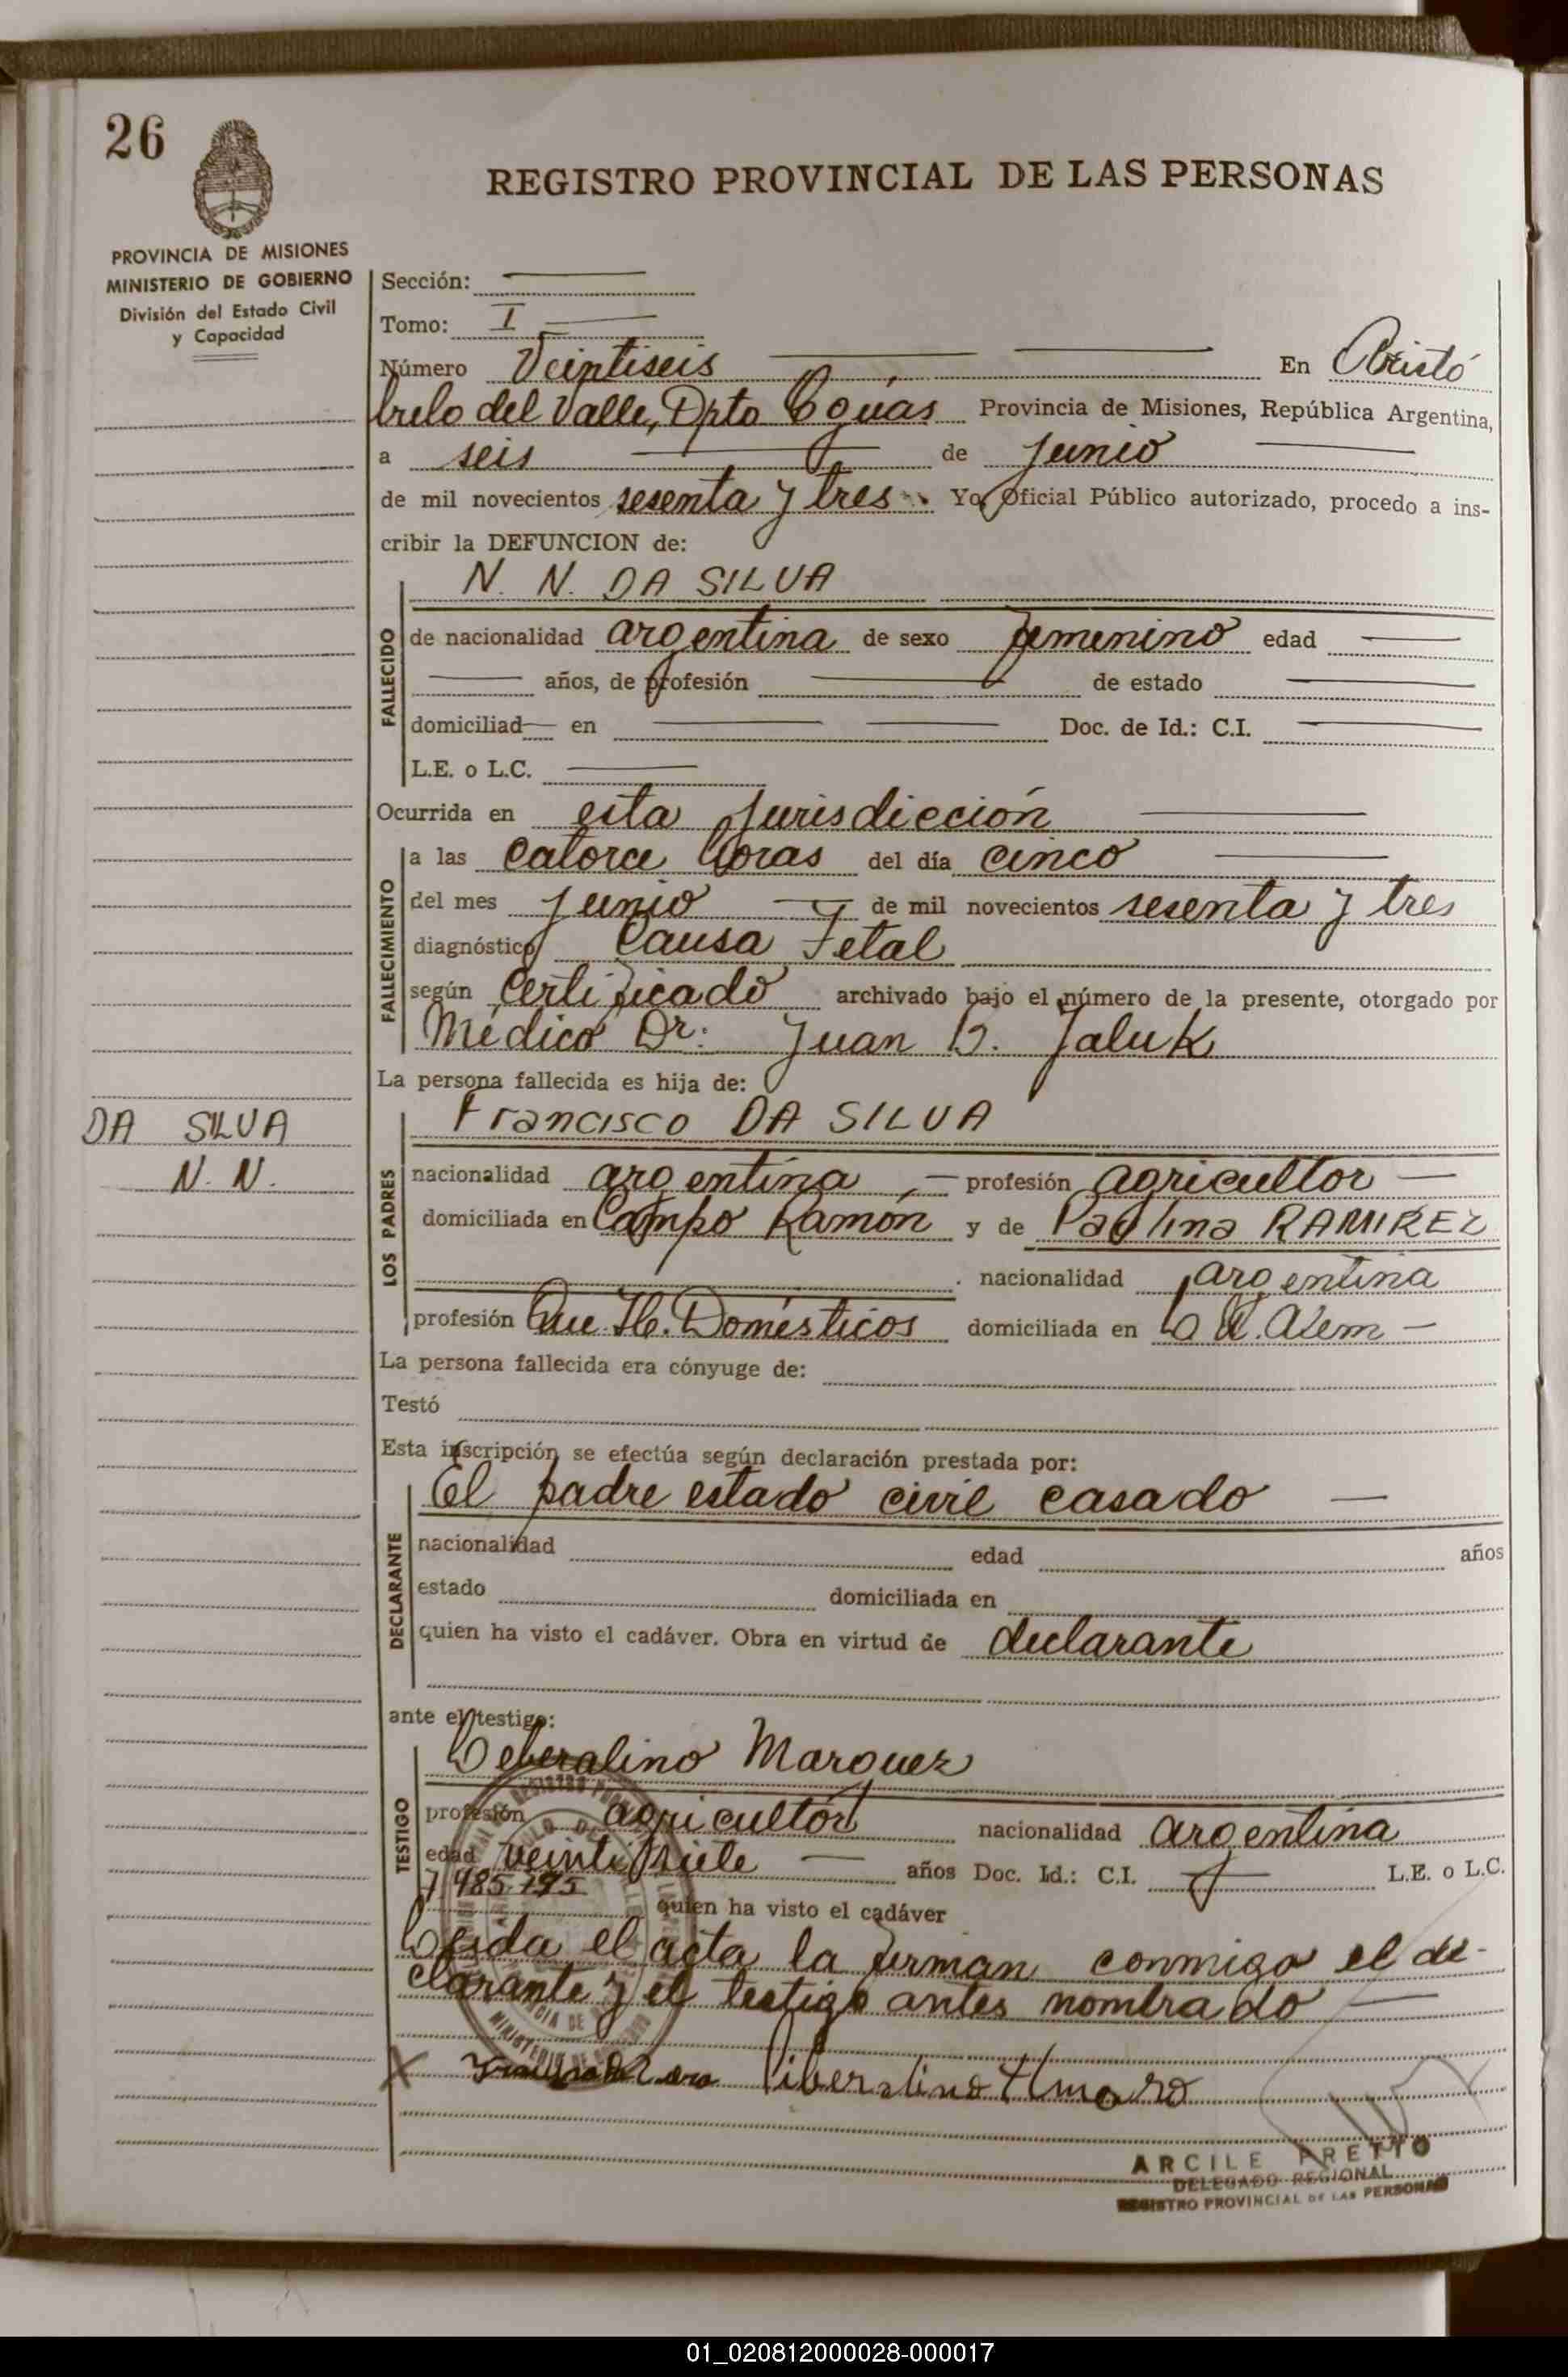 26
REGISTRO PROVINCIAL DE LAS PERSONAS
PROVINCIA DE MISIONES
MINISTERIO DE GOBIERNO
División del Estado Civil
y Capacidad
Sección:
Tomo: I
Número Veintiseis En Aristó
bulo del Valle, Dpto Cguas Provincia de Misiones, República Argentina,
a seis de junio
de mil novecientos sesenta y tres Yo, Oficial Público autorizado, procedo a ins-
cribir la DEFUNCION de:
N. N. DA SILVA
FALLECIDO
de nacionalidad argentina de sexo femenino edad
años, de profesión de estado
domiciliad en Doc. de Id.: C.I.
L.E. o L.C.
Ocurrida en esta Jurisdicción
FALLECIMIENTO
a las catorce horas del día cinco
del mes junio de mil novecientos sesenta y tres
diagnóstico Causa Fetal
según certificado archivado bajo el número de la presente, otorgado por
Médico Dr: Juan B. Jaluk
La persona fallecida es hija de:
DA SILVA
N. N.
LOS PADRES
Francisco DA SILVA
nacionalidad argentina profesión agricultor
domiciliada en Campo Ramón y de Paulina RAMIREZ
nacionalidad argentina
profesión Que Hc. Domésticos domiciliada en L. N. Alem
La persona fallecida era cónyuge de:
Testó
Esta inscripción se efectúa según declaración prestada por:
DECLARANTE
El padre estado civil casado
nacionalidad edad años
estado domiciliada en
quien ha visto el cadáver. Obra en virtud de declarante
ante el testigo:
TESTIGO
Marquez
profesión agricultor nacionalidad argentina
edad veintisiete años Doc. Id.: C.I. L.E. o L.C.
7.485.195 quien ha visto el cadáver
Leida el acta la firman conmigo el de-
clarante y el testigo antes nombrado
X liberalino
ARCILE PRETTO
DELEGADO REGIONAL
REGISTRO PROVINCIAL DE LAS PERSONAS
01_020812000028-000017